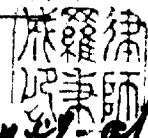 律師
羅秉
成印